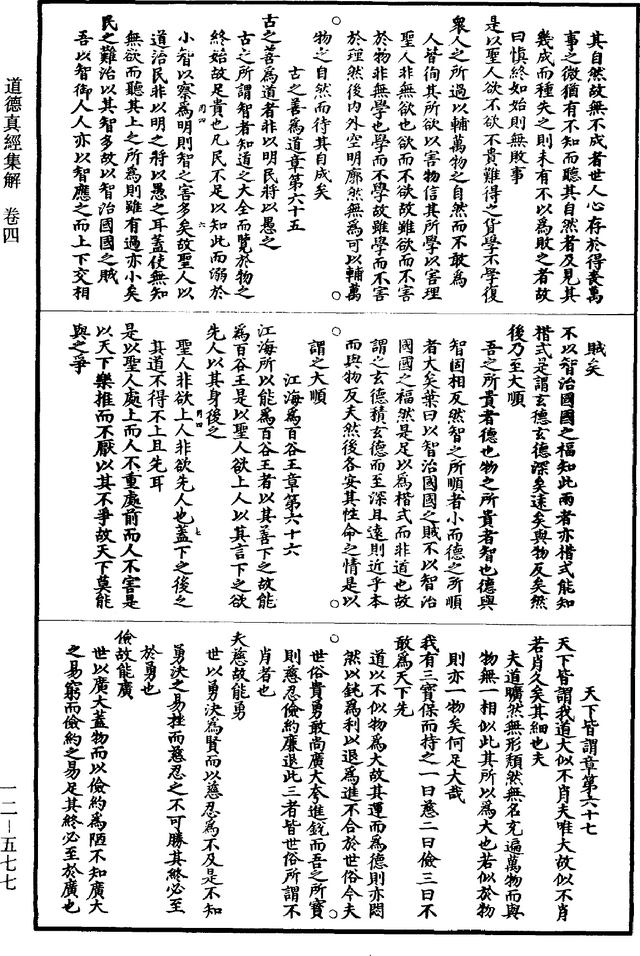 其自然故無不成者世人心存於得喪萬
事之微猶有不知而聽其自然者及見其
幾成而種失之則未有不以為敗之者故
曰慎終如始則無敗事
是以聖人欲不欲不貴難得之貨學不學復
衆人之所過以輔萬物之自然而不敢為
人皆徇其所欲以害物信其所學以害理
聖人非無欲也欲而不欲故雖欲而不害
於物非無學也學而不學故雖學而不害
於理然後內外空明廓然無為可以輔萬
物之自然而待其自成矣
古之善為道章第六十五
古之善為道者非以明民將以愚之
古之所謂智者知道之大全而覽於物之
終始故足貴也凡民不足以知此而溺於
小智以察為明則智之害多矣故聖人以
道治民非以明之將以愚之耳蓋使無知
無欲而聽其上之所為則雖有過亦小矣
民之難治以其智多故以智治國國之賊
吾以智御人人亦以智應之而上下交相
賊矣
不以智治國國之福知此兩者亦楷式能知
楷式是謂玄德玄德深矣遠矣與物反矣然
後乃至大順
吾之所貴者德也物之所貴者智也德與
智固相反然智之所順者小而德之所順
者大矣葉曰以智治國國之賊不以智治
國國之福然是足以為楷式而非道也故
謂之玄德積玄德而至深且遠則近乎本
而與物反夫然後各安其性命之情是以
謂之大順
江海為百谷王章第六十六
江海所以能為百谷王者以其善下之故能
為百谷王是以聖人欲上人以其言下之欲
先人以其身後之
聖人非欲上人非欲先人也蓋下之後之
其道不得不上且先耳
是以聖人處上而人不重處前而人不害是
以天下樂推而不厭以其不爭故天下莫能
與之爭
天下皆謂章第六十七
天下皆謂我道大似不肖夫唯大故似不肖
若肖久矣其細也夫
夫道曠然無形頹然無名充遍萬物而與
物無一相似此其所以為大也若似於物
則亦一物矣何足大哉
我有三寶保而持之一曰慈二曰儉三曰不
敢為天下先
道以不似物為大故其運而為德則亦悶
然以鈍為利以退為進不合於世俗今夫
世俗貴勇敢尚廣大夸進銳而吾之所寶
則慈忍儉約廉退此三者皆世俗所謂不
肖者也
夫慈故能勇
世以勇決為賢而以慈忍為不及是不知
勇決之易挫而慈忍之不可勝其終必至
於勇也
儉故能廣
世以廣大蓋物而以儉約為陋不知廣大
之易窮而儉約之易足其終必至於廣也
道德真經集解 卷四
一二—五七七